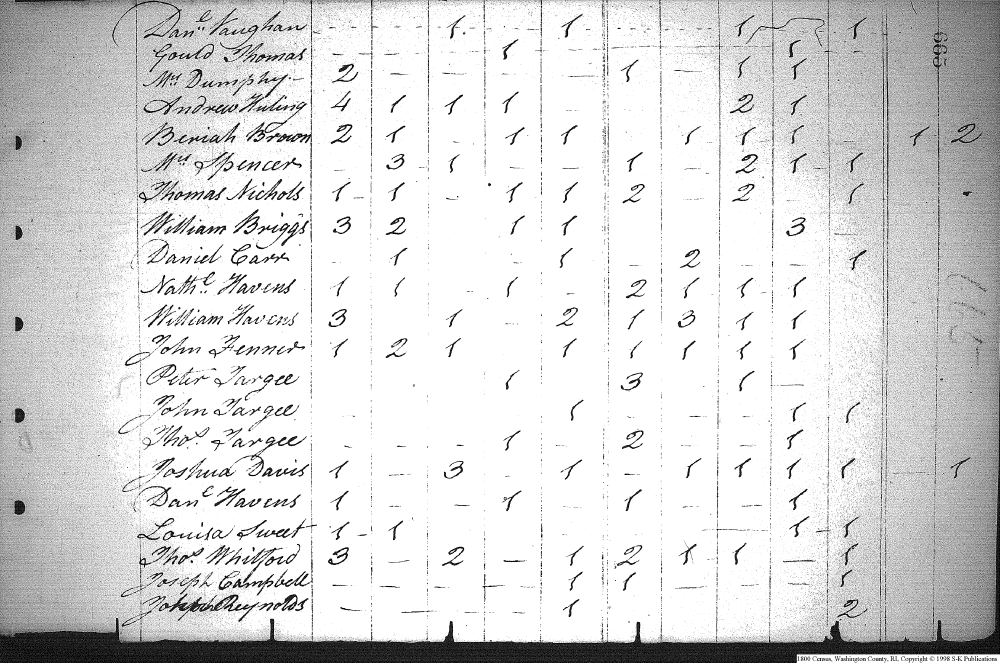 Dan.l Vaughan - - 1 - 1 - - 1 - 1
Gould Thomas - - - 1 - - - - 1 -
Mrs Dumphy 2 - - - - 1 - 1 1 -
Andrew Huling 4 1 1 1 - - - 2 1 -
Beriah Brown 2 1 - 1 1 - 1 1 1 - 1 2
Mrs Spencer - 3 1 - - 1 - 2 1 1
Thomas Nichols 1 1 - 1 1 2 - 2 - 1
William Briggs 3 2 - 1 1 - - - 3
Daniel Carr - 1 - - 1 - 2 - - 1
Nath.l Havens 1 1 - 1 - 2 1 1 1
William Havens 3 - 1 - 2 1 3 1 1
John Fenner 1 2 1 - 1 1 1 1 1
Peter Targee 1 3 - 1 -
John Targee 1 1 1
Tho.s Targee - - - 1 - 2 - - 1
Joshua Davis 1 - 3 - 1 - 1 1 1 1 1
Dan.l Havens 1 - - 1 - 1 - - 1
Louisa Sweet 1 - 1 - - - 1 1
Tho.s Whitford 3 - 2 - 1 2 1 1 - 1
Joseph Campbell - - - - 1 1 - - - 1
Reynolds - - - - 1 2
663
1800 Census, Washington County, RI, Copyright © 1998 S-K Publications